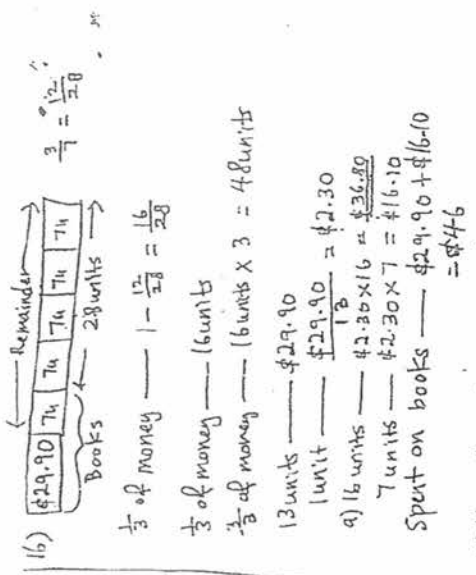 16)
← Remainder →
$29.90 | 7u | 7u | 7u | 7u | 7u
Books ← 28 units →
3/7 = 12/28
1/3 of money — 1 - 12/28 = 16/28
1/3 of money — 16 units
3/3 of money — 16 units x 3 = 48 units
13 units — $29.90
1 unit — $29.90/13 = $2.30
a) 16 units — $2.30 x 16 = $36.80
7 units — $2.30 x 7 = $16.10
Spent on books — $29.90 + $16.10
= $46